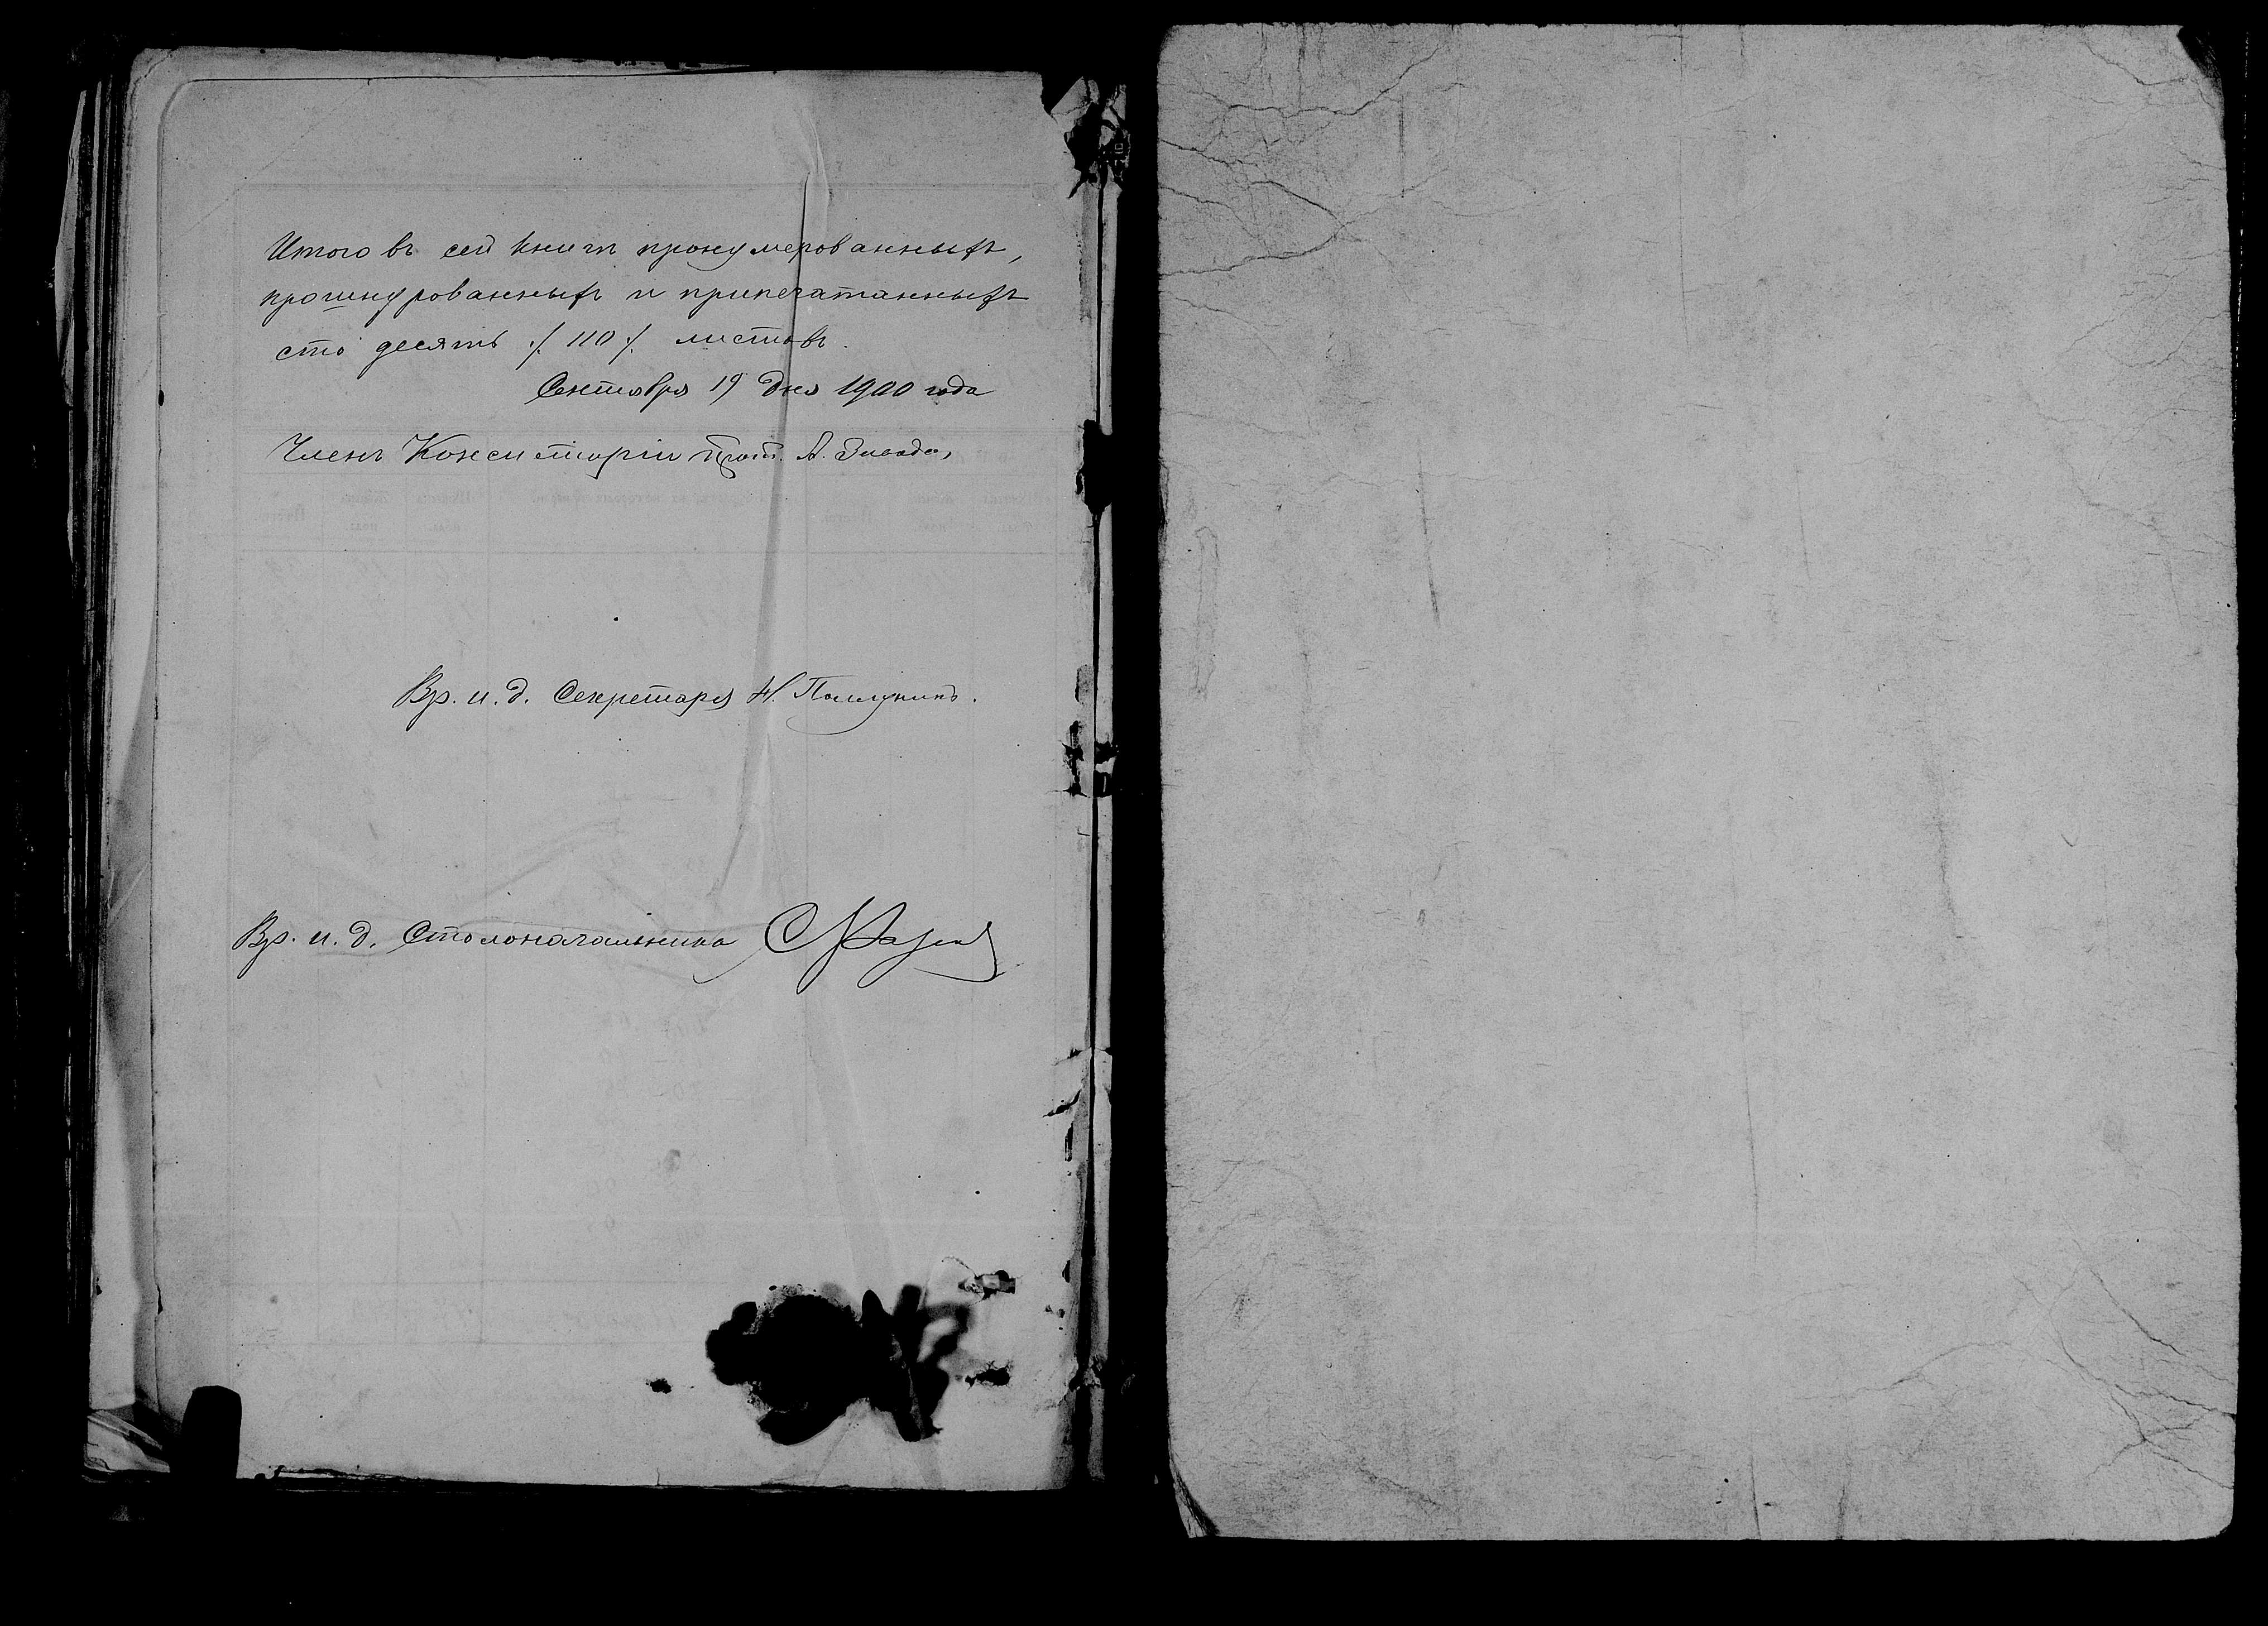 Итого въ сей книгѣ пронумерованныхъ,
прошнурованныхъ и припечатанныхъ
сто десять ./. 110 ./. листовъ.
Сентября 19 дня 1900 года
Членъ Консисторіи Прот. А.
Вр. и. д. Секретаря Н.
Вр. и. д. Столоначальника